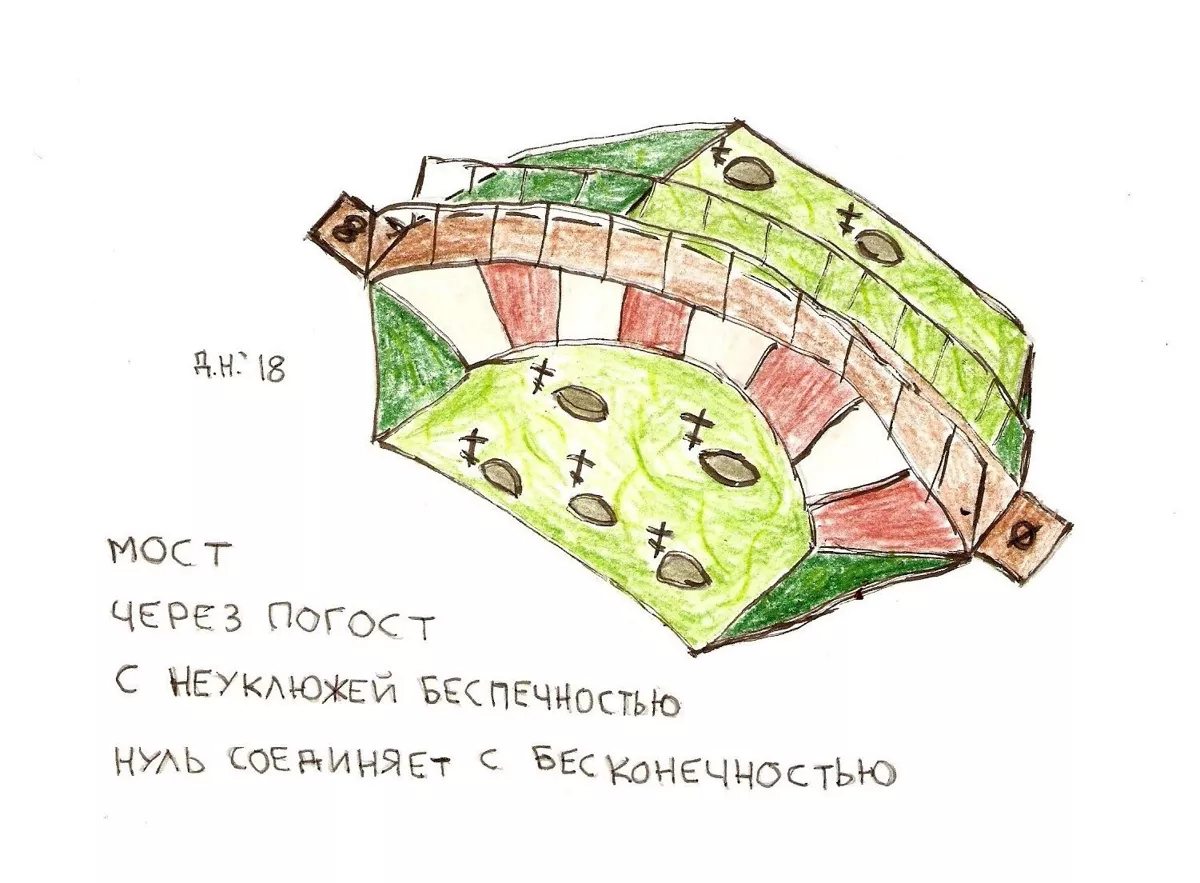 ∞
Ø
Д.Н.'18
МОСТ
ЧЕРЕЗ ПОГОСТ
С НЕУКЛЮЖЕЙ БЕСПЕЧНОСТЬЮ
НУЛЬ СОЕДИНЯЕТ С БЕСКОНЕЧНОСТЬЮ